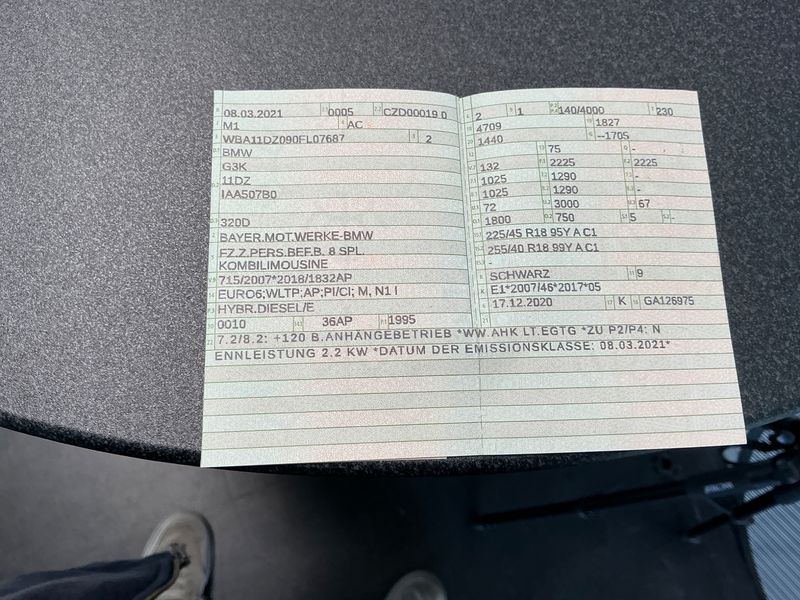 08.03.2021 0005 CZD00019 0
M1 AC
WBA11DZ090FL07687 2
BMW
G3K
11DZ
IAA507B0
320D
BAYER.MOT.WERKE-BMW
FZ.Z.PERS.BEF.B. 8 SPL.
KOMBILIMOUSINE
715/2007*2018/1832AP
EURO6;WLTP;AP;PI/CI; M, N1 I
HYBR.DIESEL/E
0010 36AP 1995
2 1 140/4000 230
4709 1827
1440 --1705
75 -
132 2225 2225
1025 1290 -
1025 1290 -
72 3000 67
1800 750 5 -
225/45 R18 95Y A C1
255/40 R18 99Y A C1
-
SCHWARZ 9
E1*2007/46*2017*05
17.12.2020 K GA126975
7.2/8.2: +120 B.ANHÄNGEBETRIEB *WW.AHK LT.EGTG *ZU P2/P4: N
ENNLEISTUNG 2.2 KW *DATUM DER EMISSIONSKLASSE: 08.03.2021*